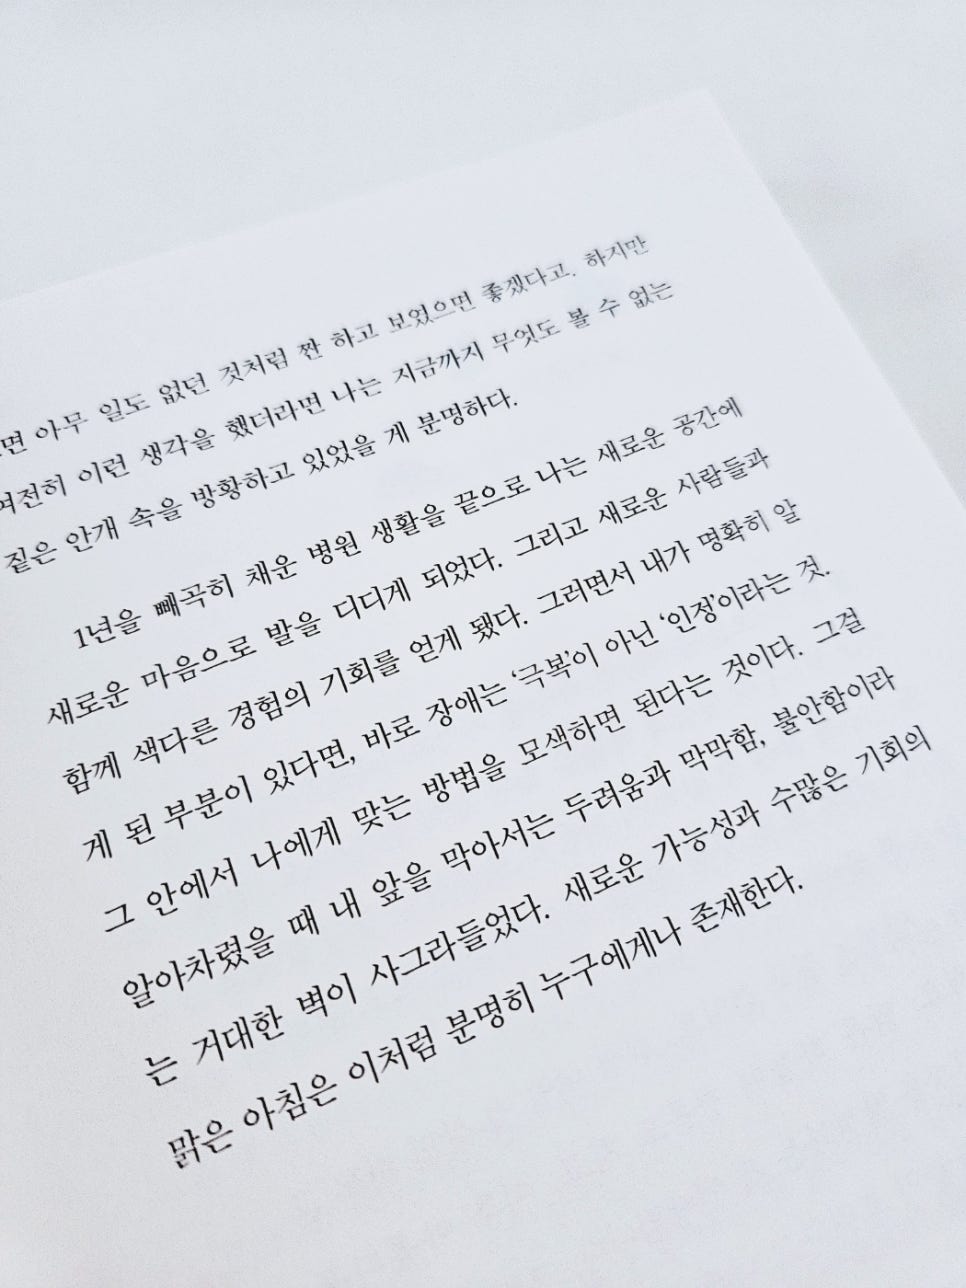 면 아무 일도 없던 것처럼 짠 하고 보였으면 좋겠다고. 하지만
여전히 이런 생각을 했더라면 나는 지금까지 무엇도 볼 수 없는
짙은 안개 속을 방황하고 있었을 게 분명하다.
1년을 빼곡히 채운 병원 생활을 끝으로 나는 새로운 공간에
새로운 마음으로 발을 디디게 되었다. 그리고 새로운 사람들과
함께 색다른 경험의 기회를 얻게 됐다. 그러면서 내가 명확히 알
게 된 부분이 있다면, 바로 장애는 ‘극복’이 아닌 ‘인정’이라는 것.
그 안에서 나에게 맞는 방법을 모색하면 된다는 것이다. 그걸
알아차렸을 때 내 앞을 막아서는 두려움과 막막함, 불안함이라
는 거대한 벽이 사그라들었다. 새로운 가능성과 수많은 기회의
맑은 아침은 이처럼 분명히 누구에게나 존재한다.